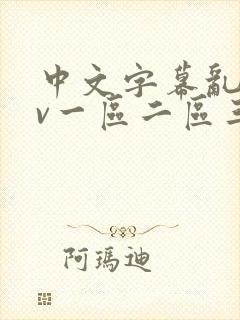 中文字幕亂
v一區二區三
阿瑪迪